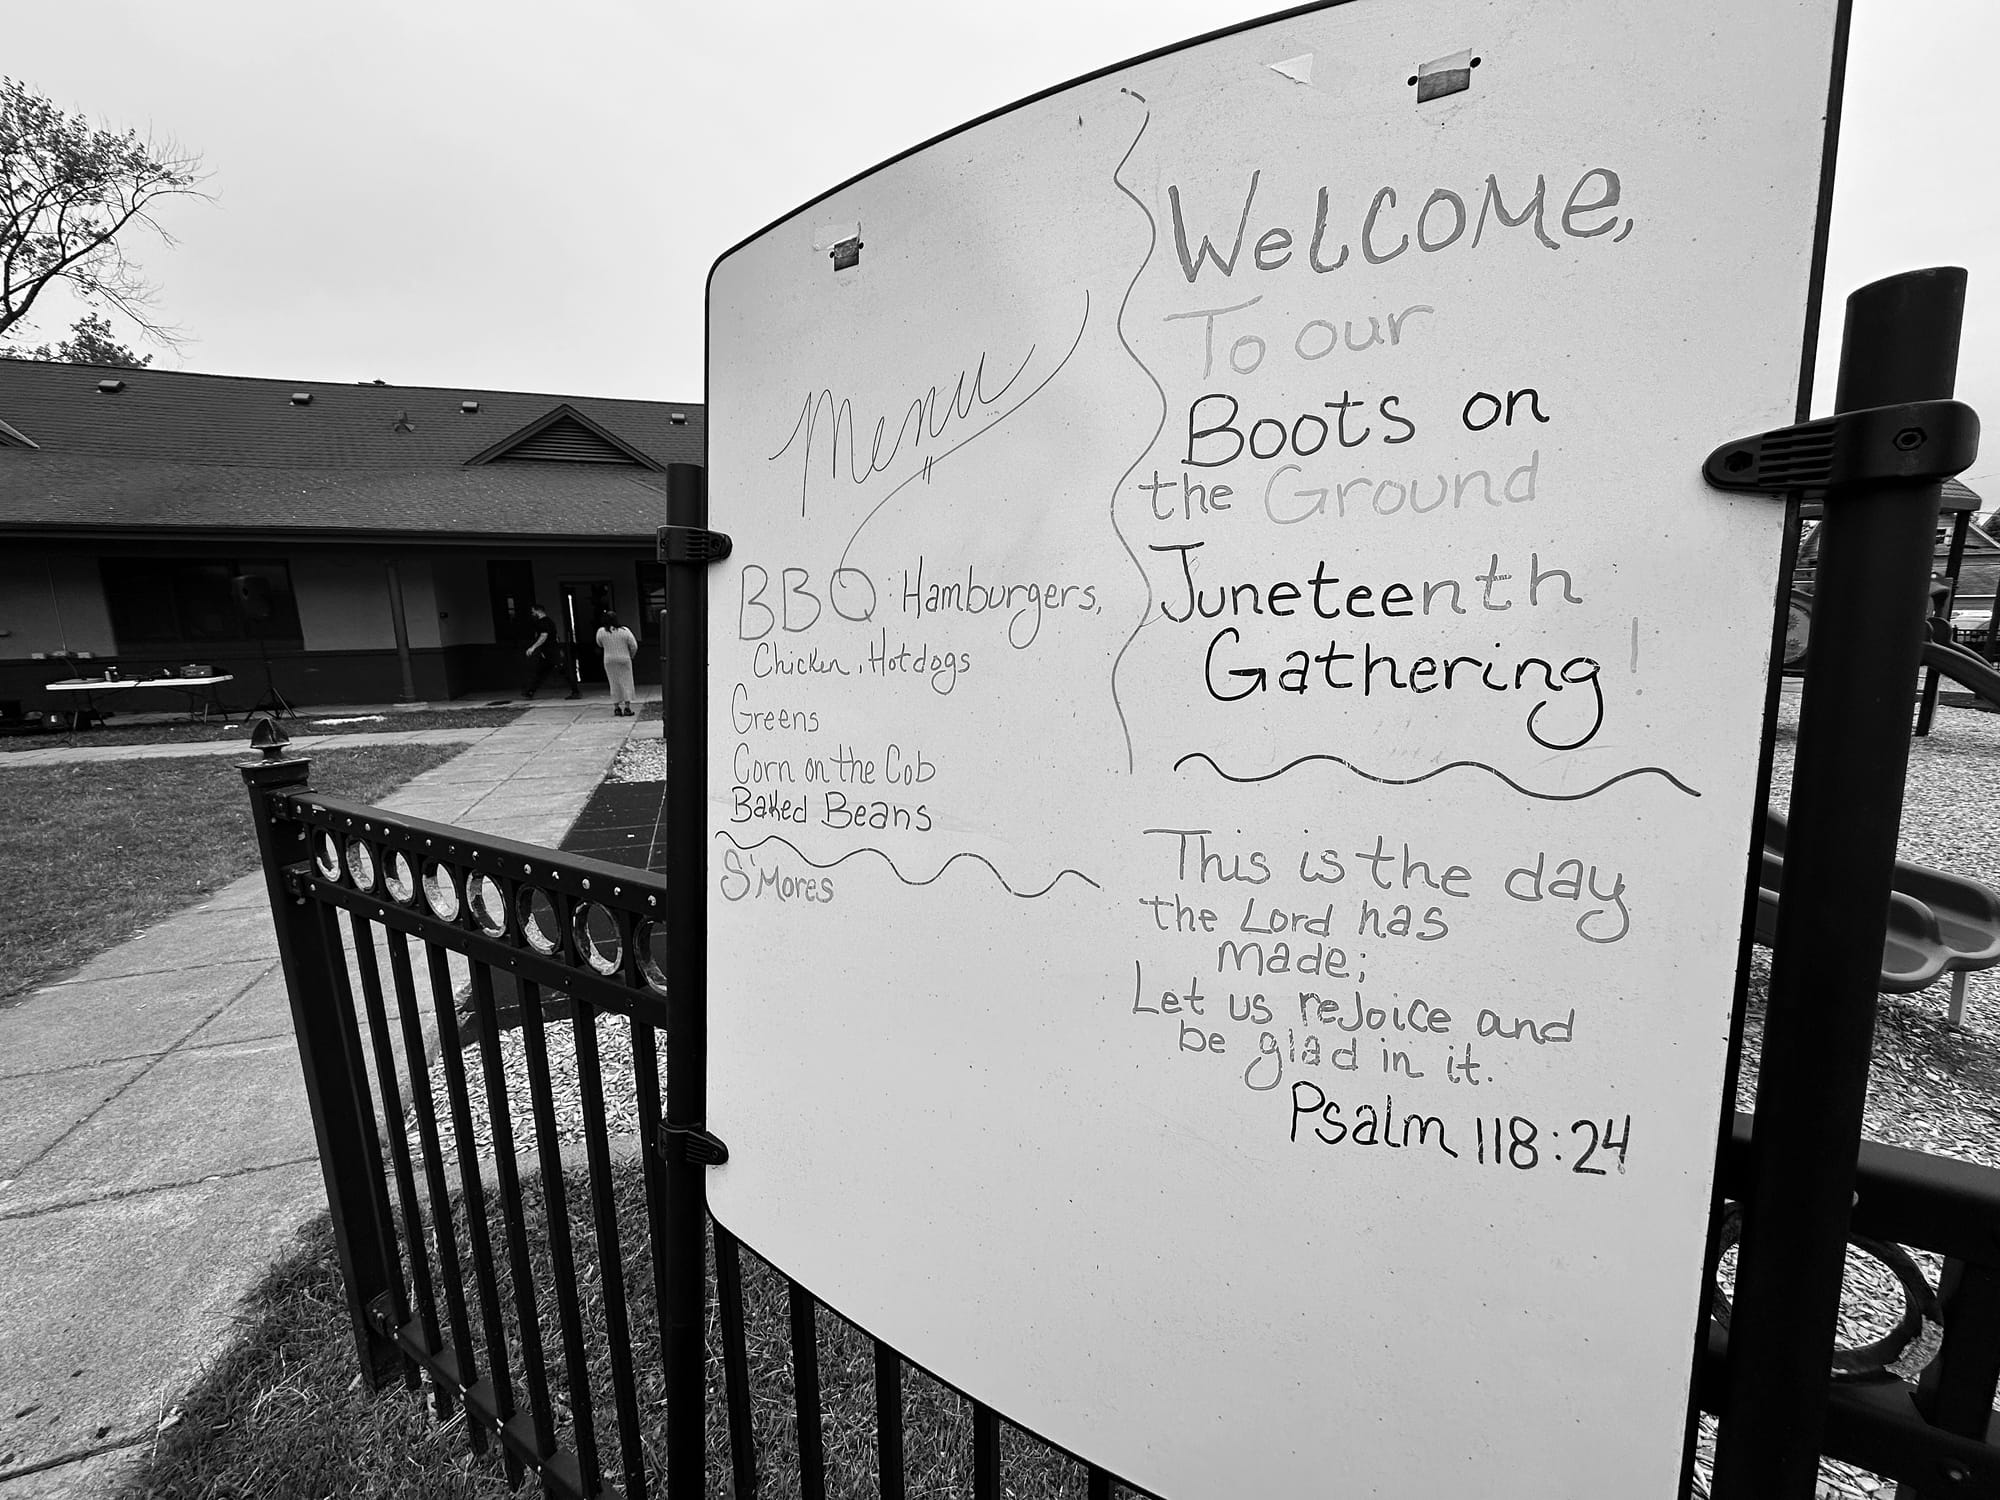 Menu
BBQ: Hamburgers,
Chicken, Hotdogs
Greens
Corn on the Cob
Baked Beans
S'Mores
Welcome,
To our
Boots on
the Ground
Juneteenth
Gathering!
This is the day
the Lord has
made;
Let us rejoice and
be glad in it.
Psalm 118:24